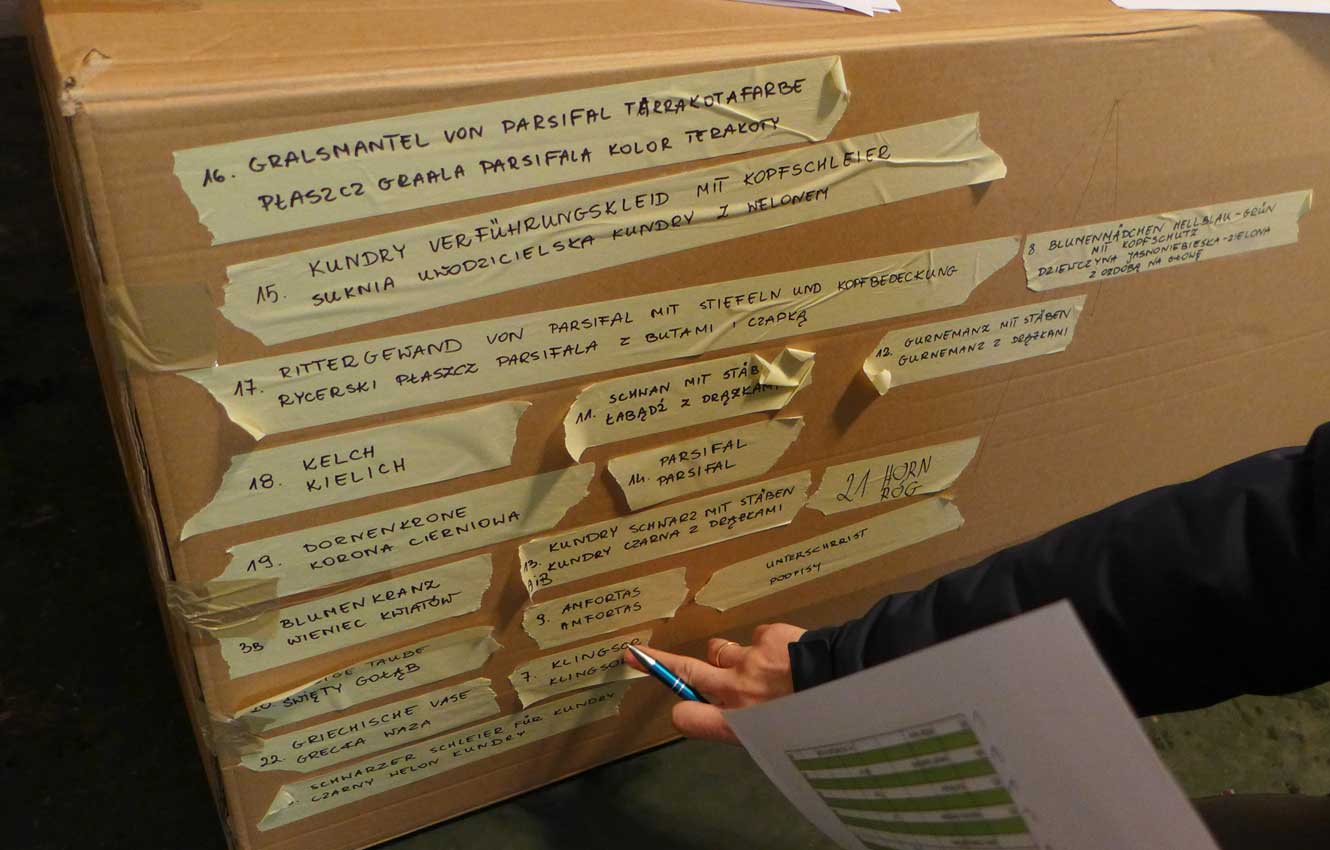 16. GRALSMANTEL VON PARSIFAL TARRAKOTAFARBE
PŁASZCZ GRAALA PARSIFALA KOLOR TERAKOTY
KUNDRY VERFÜHRUNGSKLEID MIT KOPFSCHLEIER
15. SUKNIA UWODZICIELSKA KUNDRY Z WELONEM
8. BLUMENMÄDCHEN HELLBLAU-GRÜN
MIT KOPFSCHUTZ
DZIEWCZYNA JASNONIEBIESKA-ZIELONA
Z OZDOBĄ NA GŁOWĘ
17. RITTERGEWAND VON PARSIFAL MIT STIEFELN UND KOPFBEDECKUNG
RYCERSKI PŁASZCZ PARSIFALA Z BUTAMI I CZAPKĄ
12. GURNEMANZ MIT STÄBEN
GURNEMANZ Z DRĄŻKAMI
11. SCHWAN MIT STÄB
ŁABĄDŹ Z DRĄŻKAM
18. KELCH
KIELICH
14. PARSIFAL
PARSIFAL
21 HORN
RÓG
19. DORNENKRONE
KORONA CIERNIOWA
13. KUNDRY SCHWARZ MIT STÄBEN
KUNDRY CZARNA Z DRĄŻKAMI
A i B
UNTERSCHRIST
PODPISY
3B BLUMENKRANZ
WIENIEC KWIATÓW
9. ANFORTAS
AMFORTAS
TAUBE
20. ŚWIĘTY GOŁĄB
7. KLINGSOR
KLINGSOR
22. GRIECHISCHE VASE
GRECKA WAZA
SCHWARZER SCHLEIER FÜR KUNDRY
CZARNY WELON KUNDRY